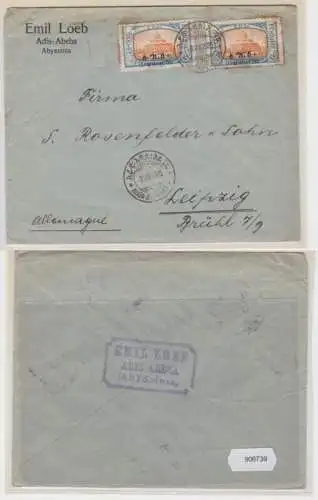 Emil Loeb
Adis-Abeba
Abyssinia
Firma
S. Rosenfelder & Sohn
Leipzig
Allemagne
Brühl 7/9
EMIL LOEB
ADIS ABEBA
(ABYSSINIA)
906739